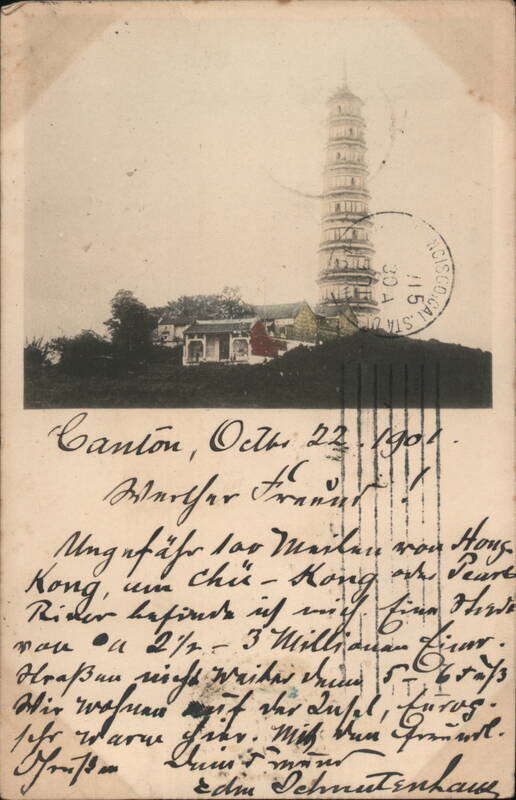 NCISCO, CAL. STA. D
11 5
30 A
Canton, Octbr 22. 1901.
Werther Freund!
Ungefähr 100 Meilen von Hong-
Kong, am Chü-Kong oder Pearl
River befinde ich mich. Eine Stadt
von 2½ - 3 Millionen Einw.
Straßen nicht weiter denn 5-6 Fuß
Wir wohnen auf der Insel, Europ.
sehr warm hier. Mit den freundl.
Grüßen Dein Freund
Edm